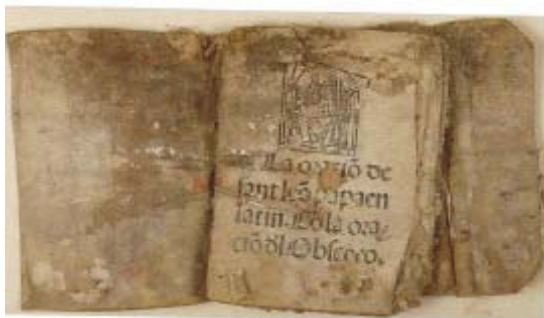 La oraciõ de
sant leõ papa en
latin. Cõ la ora-
ciõ dl Obsecro.